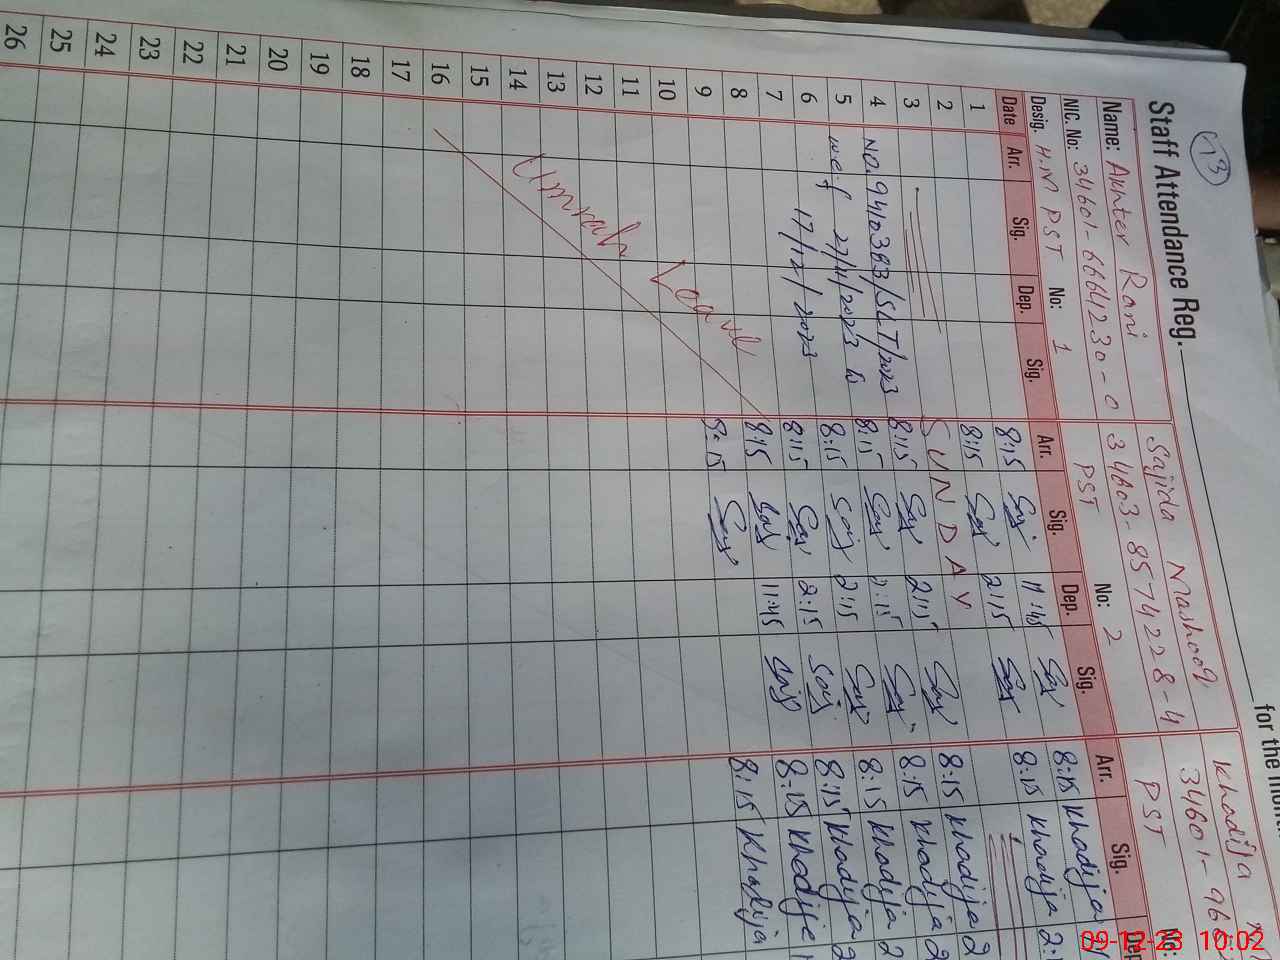 13
Staff Attendance Reg. for the mon
Name: Akhter Rani
NIC. No: 34601-6664230-0
Desig. H.M PST No: 1
Sajida Mashooq
34603-8574228-4
PST No: 2
Khadija
34601-96
PST No:
Date Arr. Sig. Dep. Sig. Arr. Sig. Dep. Sig. Arr. Sig. Dep
1 8:15 Saj 11:45 Saj 8:15 Khadija
2 8:15 Saj 2:15 Saj 8:15 Khadija 2:1
3 SUNDAY
4 NO.9410383/SLT/2023 8:15 Saj 2:15 Saj 8:15 Khadija 2
5 w.e.f 27/11/2023 to 8:15 Saj 2:15 Saj 8:15 Khadija 2
6 17/12/2023 8:15 Saj 2:15 Saj 8:15 Khadija 2
7 8:15 Saj 2:15 Saj 8:15 Khadija 2
8 8:15 Saj 11:45 Saj 8:15 Khadija 1
9 8:15 Saj 8:15 Khadija
10
11
12
13
14
15
16
17
18
19
20
21
22
23
24
25
26
Umrah Leave
09-12-23 10:02